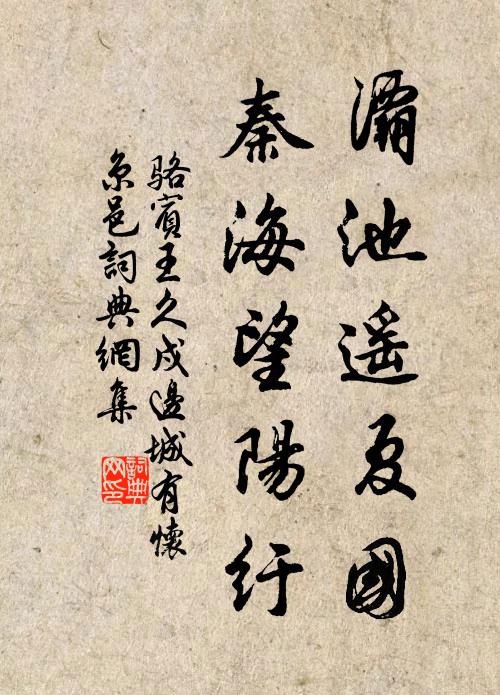 灞池遥夏國
秦海望陽紆
駱賓王久戍邊城有懷
京邑詞典網集
詞典網印